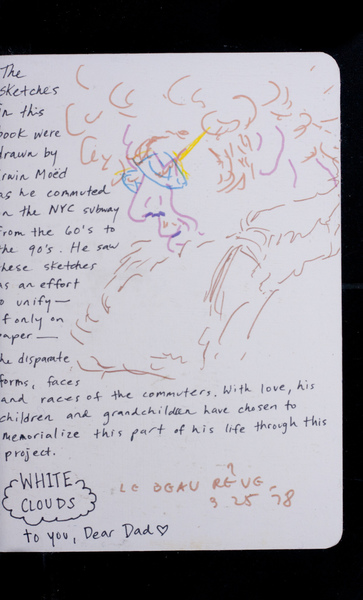 The
sketches
in this
book were
drawn by
Irwin Moëd
as he commuted
on the NYC subway
from the 60's to
the 90's. He saw
these sketches
as an effort
to unify—
if only on
paper—
the disparate
forms, faces
and races of the commuters. With love, his
children and grandchildren have chosen to
memorialize this part of his life through this
project.
WHITE
CLOUDS
to you, Dear Dad♡
LE BEAU RÊVE
3 25 78